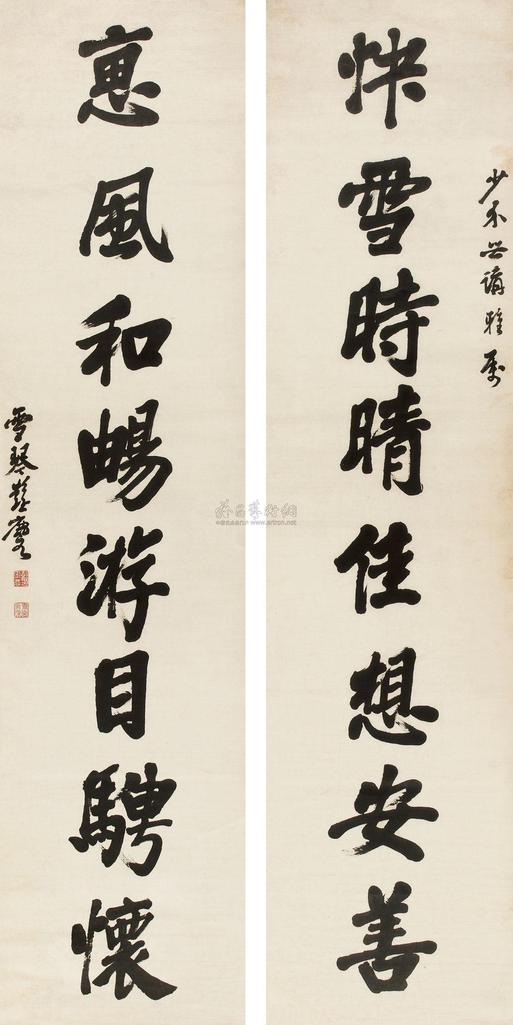 少禾世講雅屬
快雪時晴佳想安善
惠風和暢游目騁懷
雪琴彭玉麐
www.artron.net